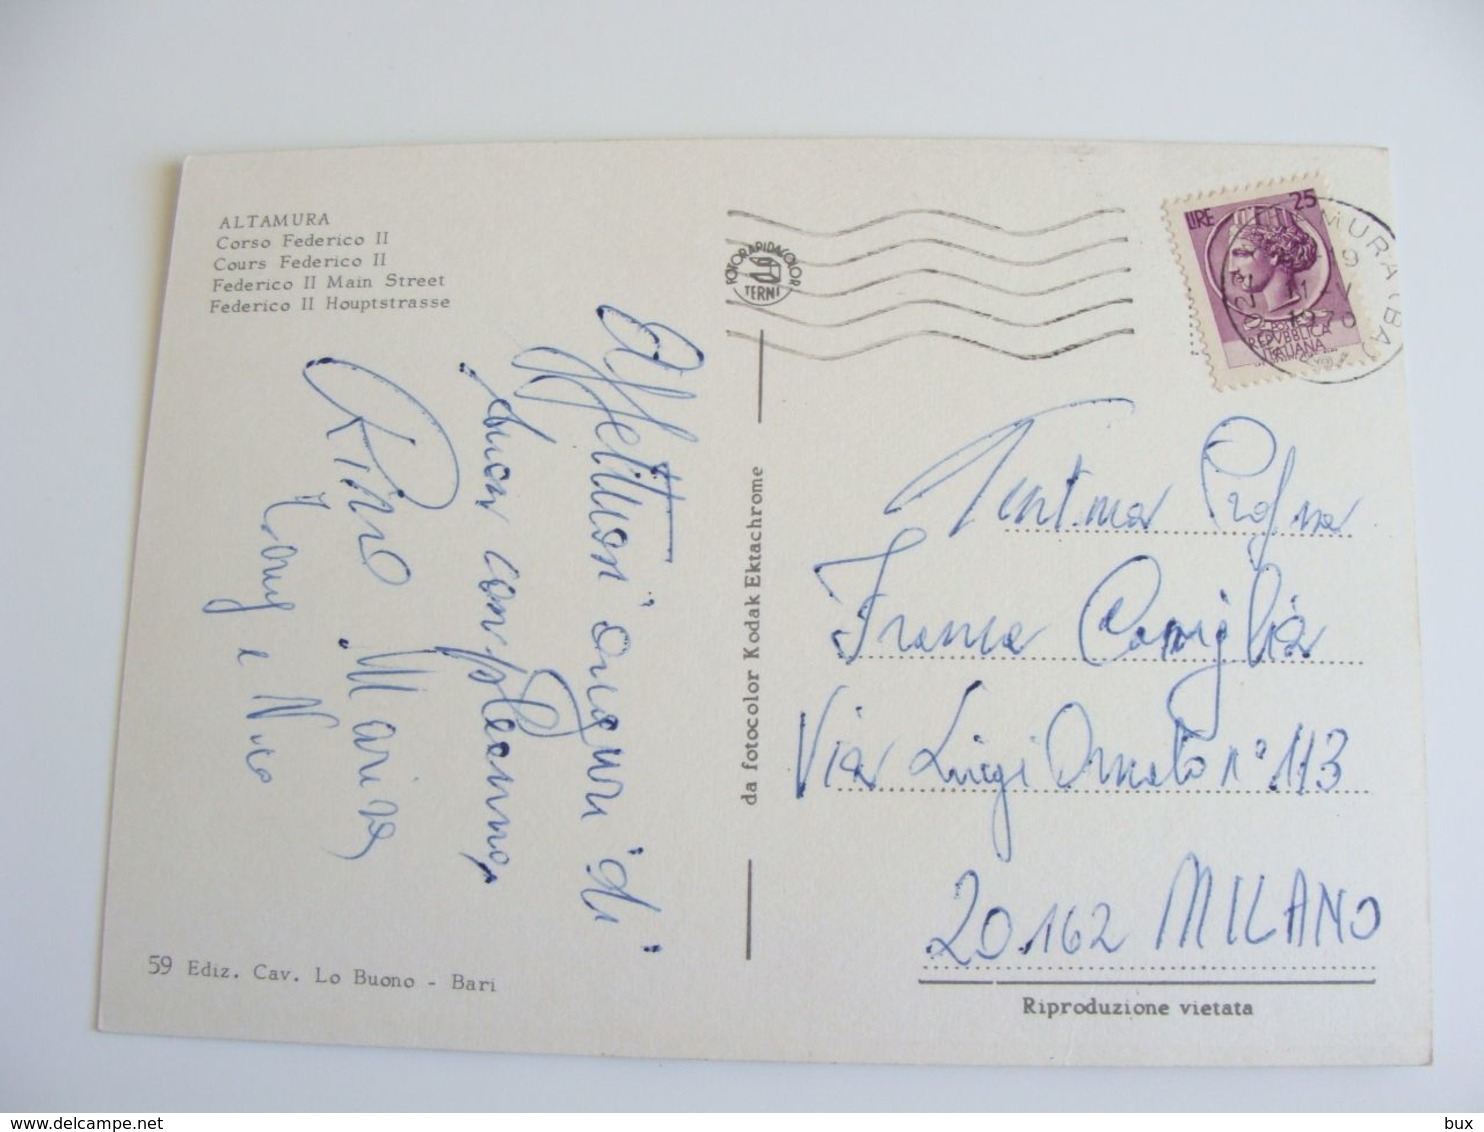 ALTAMURA
Corso Federico II
Cours Federico II
Federico II Main Street
Federico II Hauptstrasse
Affettuosi auguri di
buon compleanno,
Rino Marisa
Tony e Nico
59 Ediz. Cav. Lo Buono - Bari
da fotocolor Kodak Ektachrome
FOTORAPIDACOLOR
TERNI
LIRE 25
REPVBBLICA
ITALIANA
ALTAMURA (BA)
Gent.ma Prof.ssa
Franca Coniglia
Via Luigi Ornato n° 113
20162 MILANO
Riproduzione vietata
www.delcampe.net
bux